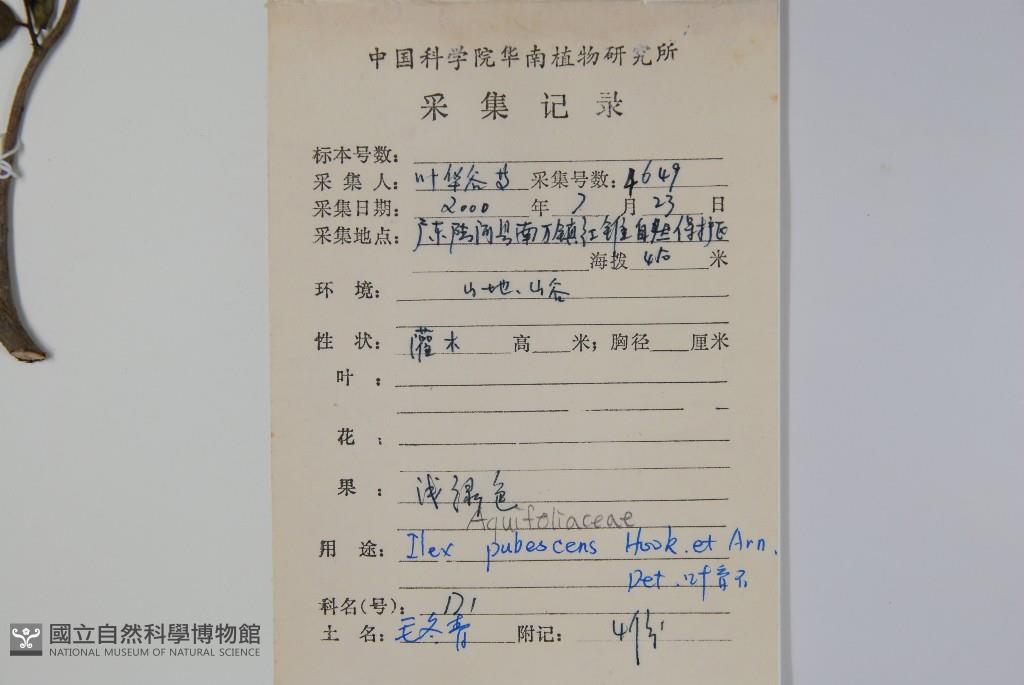 中国科学院华南植物研究所
采集记录
标本号数：
采集人：叶华谷等 采集号数：4649
采集日期：2000年7月23日
采集地点：广东陆河县南万镇红锥自然保护区
海拨 450 米
环境：山地、山谷
性状：灌木 高 米；胸径 厘米
叶：
花：
果：浅绿色
Aquifoliaceae
用途：Ilex pubescens Hook. et Arn.
Det. 叶育石
科名(号)：171
土名：毛冬青 附记：4份
國立自然科學博物館
NATIONAL MUSEUM OF NATURAL SCIENCE